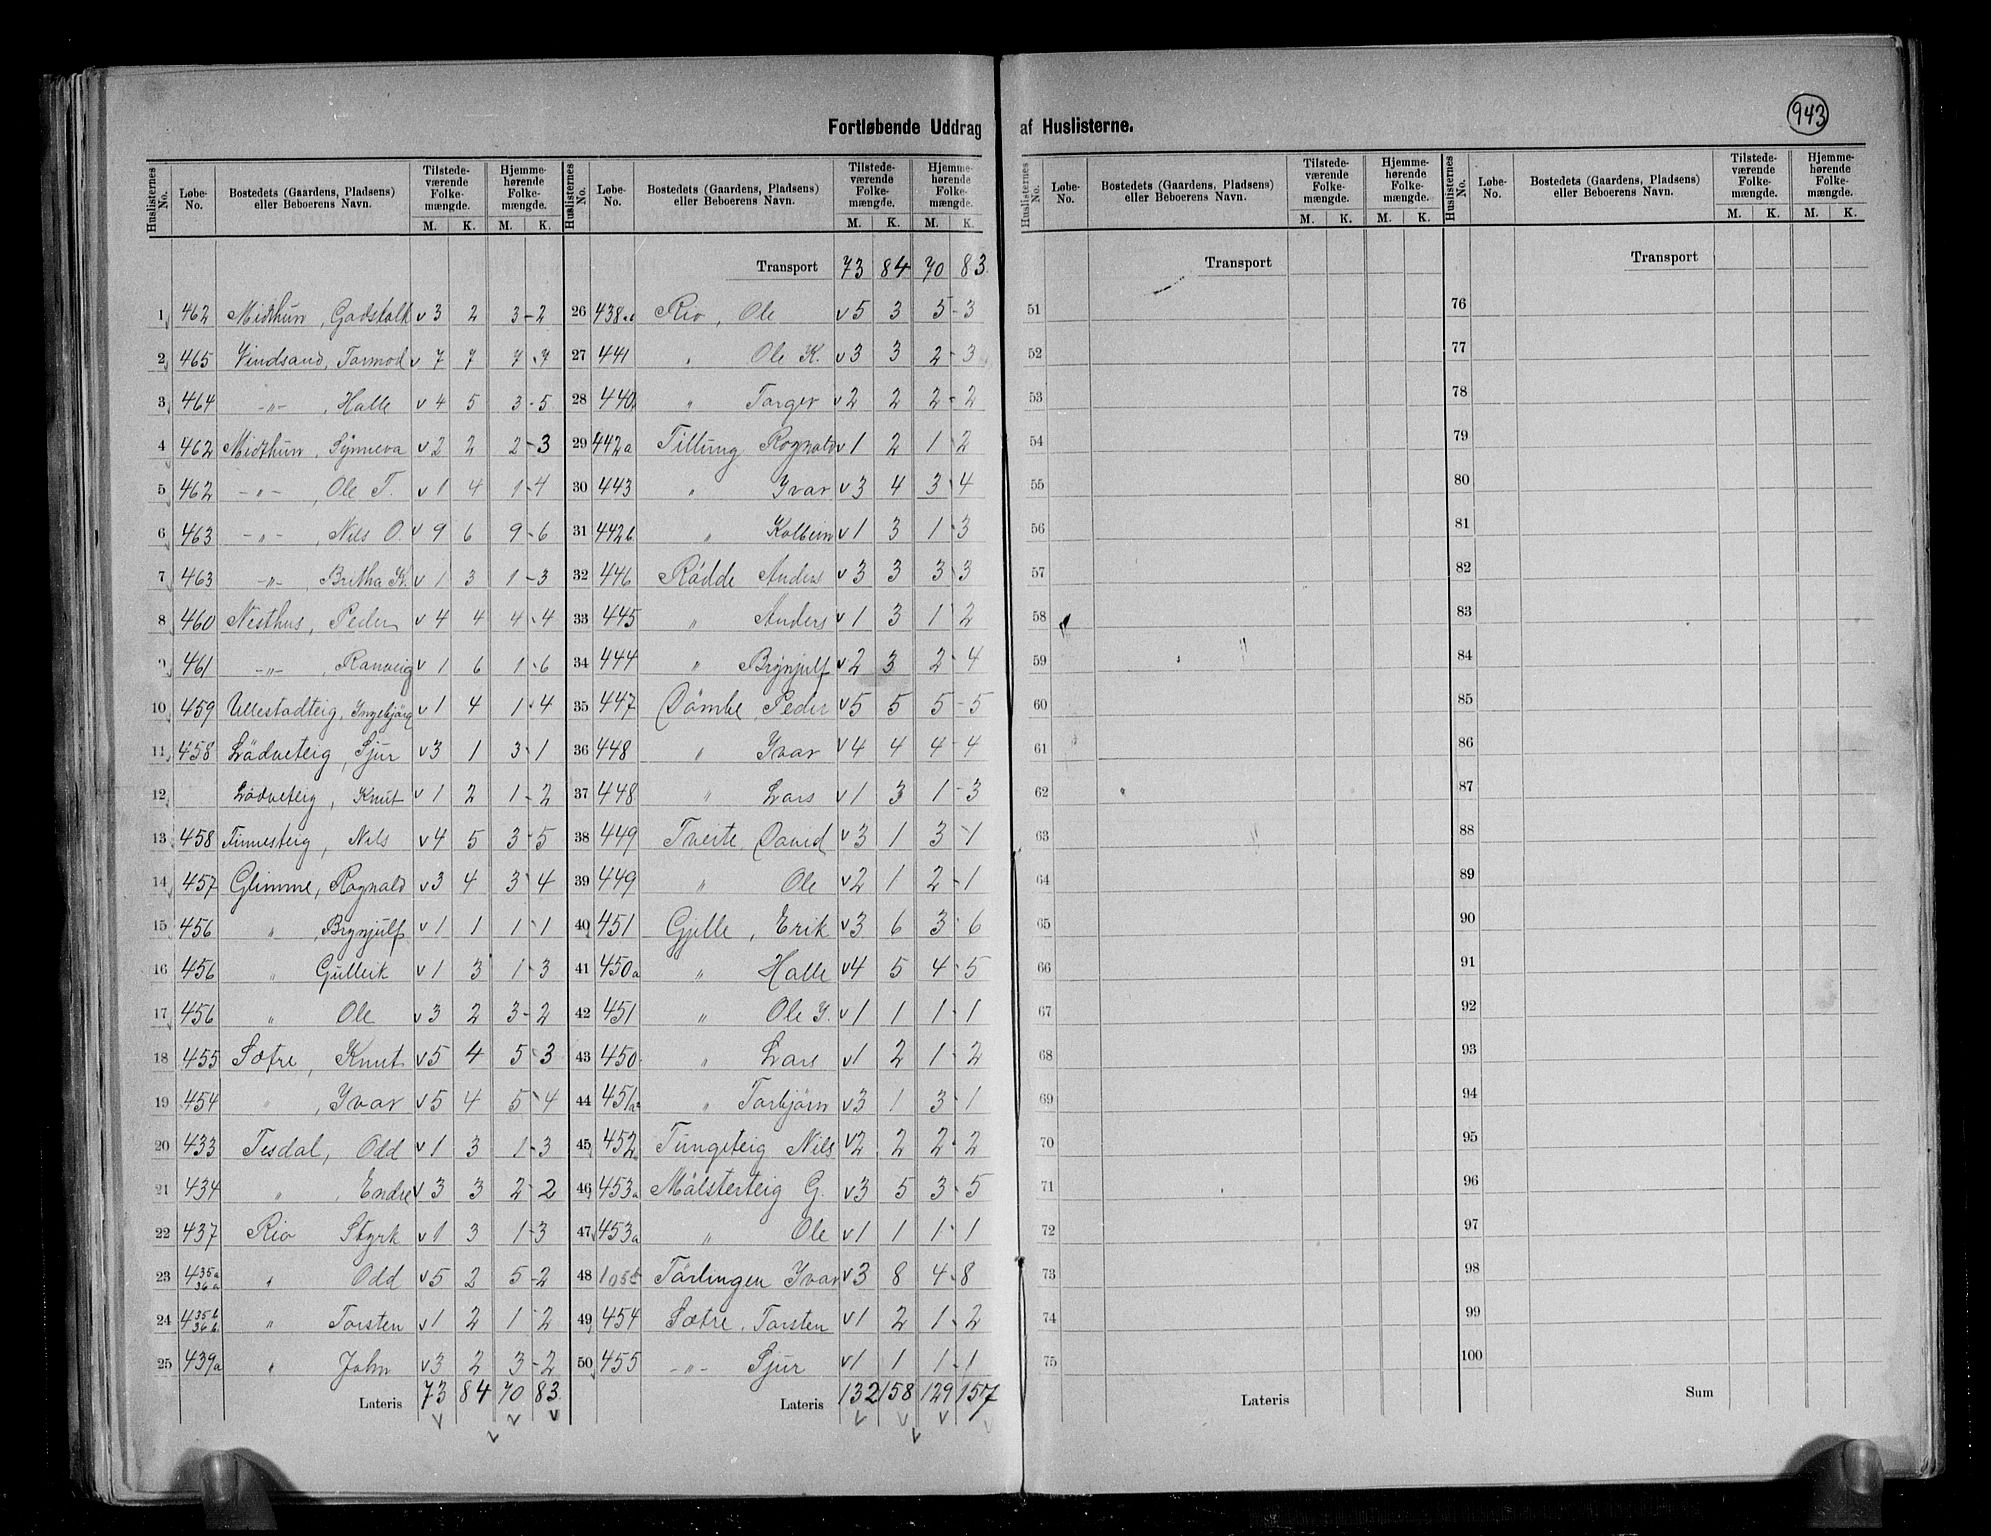 943
Fortløbende Uddrag af Huslisterne.
Huslisternes No. Løbe-No. Bostedets (Gaardens, Pladsens) eller Beboerens Navn. Tilstedeværende Folkemængde. Hjemmehørende Folkemængde. Huslisternes No. Løbe-No. Bostedets (Gaardens, Pladsens) eller Beboerens Navn. Tilstedeværende Folkemængde. Hjemmehørende Folkemængde.
M. K. M. K. M. K. M. K.
Transport 73 84 70 83
1 462 Midthun, Gadskalk v 3 2 3-2
2 465 Vindsand, Tormod v 7 7 7-7
3 464 -"- , Halle v 4 5 3-5
4 462 Midthun, Synneva v 2 2 2-3
5 462 -"- , Ole T. v 1 4 1-4
6 463 -"- , Nils O. v 9 6 9-6
7 463 -"- , Britha K. v 1 3 1-3
8 460 Nesthus, Peder v 4 4 4-4
9 461 -"- , Ranveig v 1 6 1-6
10 459 Ullestadteig, Ingebjørg v 1 4 1-4
11 458 Lødveteig, Sjur v 3 1 3-1
12 Lødveteig, Knut v 1 2 1-2
13 458 Finnesteig, Nils v 4 5 3-5
14 457 Glimme, Rognald v 3 4 3-4
15 456 " , Brynjulf v 1 1 1-1
16 456 " Gulleik v 1 3 1-3
17 456 " Ole v 3 2 3-2
18 455 Sætre, Knut v 5 4 5-3
19 454 " , Ivar v 5 4 5-4
20 433 Tesdal, Odd v 1 3 1-3
21 434 " , Endre v 3 3 2-2
22 437 Rio Styrk v 1 3 1-3
23 435a 36a " Odd v 5 2 5-2
24 435b 36b " Torsten v 1 2 1-2
25 439a " John v 3 2 3-2
Lateris 73 84 70 83
26 438 Rio, Ole v 5 3 5-3
27 441 " Ole K. v 3 3 2-3
28 440 " Torger v 2 2 2-2
29 442a Tillung Rognald v 1 2 1-2
30 443 " Ivar v 3 4 3-4
31 442b " Kolbein v 1 3 1-3
32 446 Rødde Anders v 3 3 3-3
33 445 " Anders v 1 3 1-2
34 444 " Brynjulf v 2 3 2-4
35 447 Dømbe, Peder v 5 5 5-5
36 448 " Ivar v 4 4 4-4
37 448 " Lars v 1 3 1-3
38 449 Tveite David v 3 1 3-1
39 449 " Ole v 2 1 2-1
40 451 Gjelle, Erik v 3 6 3-6
41 450a " Halle v 4 5 4-5
42 451 " Ole I. v 1 1 1-1
43 450 " Lars v 1 2 1-2
44 451a " Torbjørn v 3 1 3-1
45 452 Tungeteig Nils v 2 2 2-2
46 453a Målsterteig G. v 3 5 3-5
47 453a " Ole v 1 1 1-1
48 Tørlingen Ivar v 3 8 4-8
49 454 Sætre, Torsten v 1 2 1-2
50 455 -"- Sjur v 1 1 1-1
Lateris 132 158 129 157
Huslisternes No. Løbe-No. Bostedets (Gaardens, Pladsens) eller Beboerens Navn. Tilstedeværende Folkemængde. Hjemmehørende Folkemængde. Huslisternes No. Løbe-No. Bostedets (Gaardens, Pladsens) eller Beboerens Navn. Tilstedeværende Folkemængde. Hjemmehørende Folkemængde.
M. K. M. K. M. K. M. K.
Transport Transport
51 76
52 77
53 78
54 79
55 80
56 81
57 82
58 83
59 84
60 85
61 86
62 87
63 88
64 89
65 90
66 91
67 92
68 93
69 94
70 95
71 96
72 97
73 98
74 99
75 100
Lateris Sum